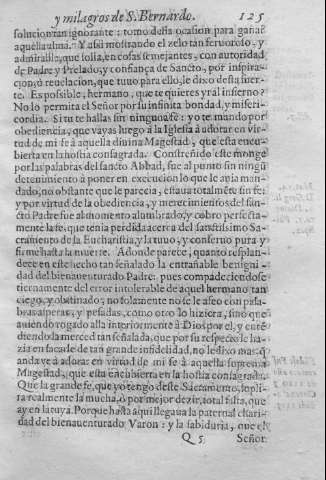 y milagros de S. Bernardo. 125
solucion tan ignorante: tomò desta ocasion para ganar
aquella alma. Y assi mostrando el zelo tan feruoroso, y
admirable, que solia, en cosas semejantes, con autoridad
de Padre y Prelado, y confiança de Sancto, por inspira-
cion, ò reuelacion, que tuuo para ello, le dixo desta suer-
te. Es possible, hermano, que te quieres yr al infierno?
No lo permita el Señor por su infinita bondad, y miseri-
cordia. Si tu te hallas sin ninguna fè: yo te mando por
obediencia, que vayas luego à la Iglesia à adorar en vir-
tud de mi fe à aquella diuina Magestad, que esta encu-
bierta en la hostia consagrada. Constreñido este monge
por las palabras del sancto Abbad, fue al punto sin ningũ
detenimiento à poner en execucion lo que le auia man-
dado, no obstante que le parecia, estaua totalmẽte sin fe:
y por virtud de la obediencia, y merecimientos del san-
cto Padre fue al momento alumbrado, y cobro perfecta-
mente la fe, que tenia perdida acerca del sanctissimo Sa-
cramento de la Eucharistia, y la tuuo, y conseruo pura y
firme hasta la muerte. Adonde parece, quanto resplan-
dece en este hecho tan señalado la entrañable benigni-
dad del bienauenturado Padre, pues compadeciendose
tiernamente del error intolerable de aquel hermano tan
ciego, y obstinado, no solamente no se le afeo con pala-
bras asperas, y pesadas, como otro lo hiziera, sino que
auiendo rogado alla interiormente à Dios por el, y entẽ-
diendo la merced tan señalada, que por su respecto le ha-
zia en sacarle de tan grande infidelidad, no le dixo mas: q̃
anda ve à adorar en virtud de mi fe à aquella suprema
Magestad, que esta encubierta en la hostia consagrada.
Que la grande fe, que yo tengo deste Sacramento, supli-
ra realmente la mucha, ò por mejor dezir, total falta, que
ay en la tuya. Porque hasta aqui llegaua la paternal chari-
dad del bienauenturado Varon: y la sabiduria, que el
Q 5 Señor